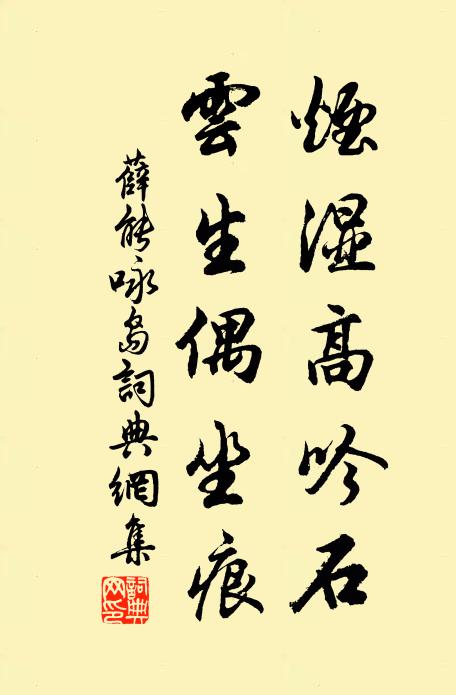 煙湿高吟石
雲生偶坐痕
薛能咏島詞典網集
詞典
网印